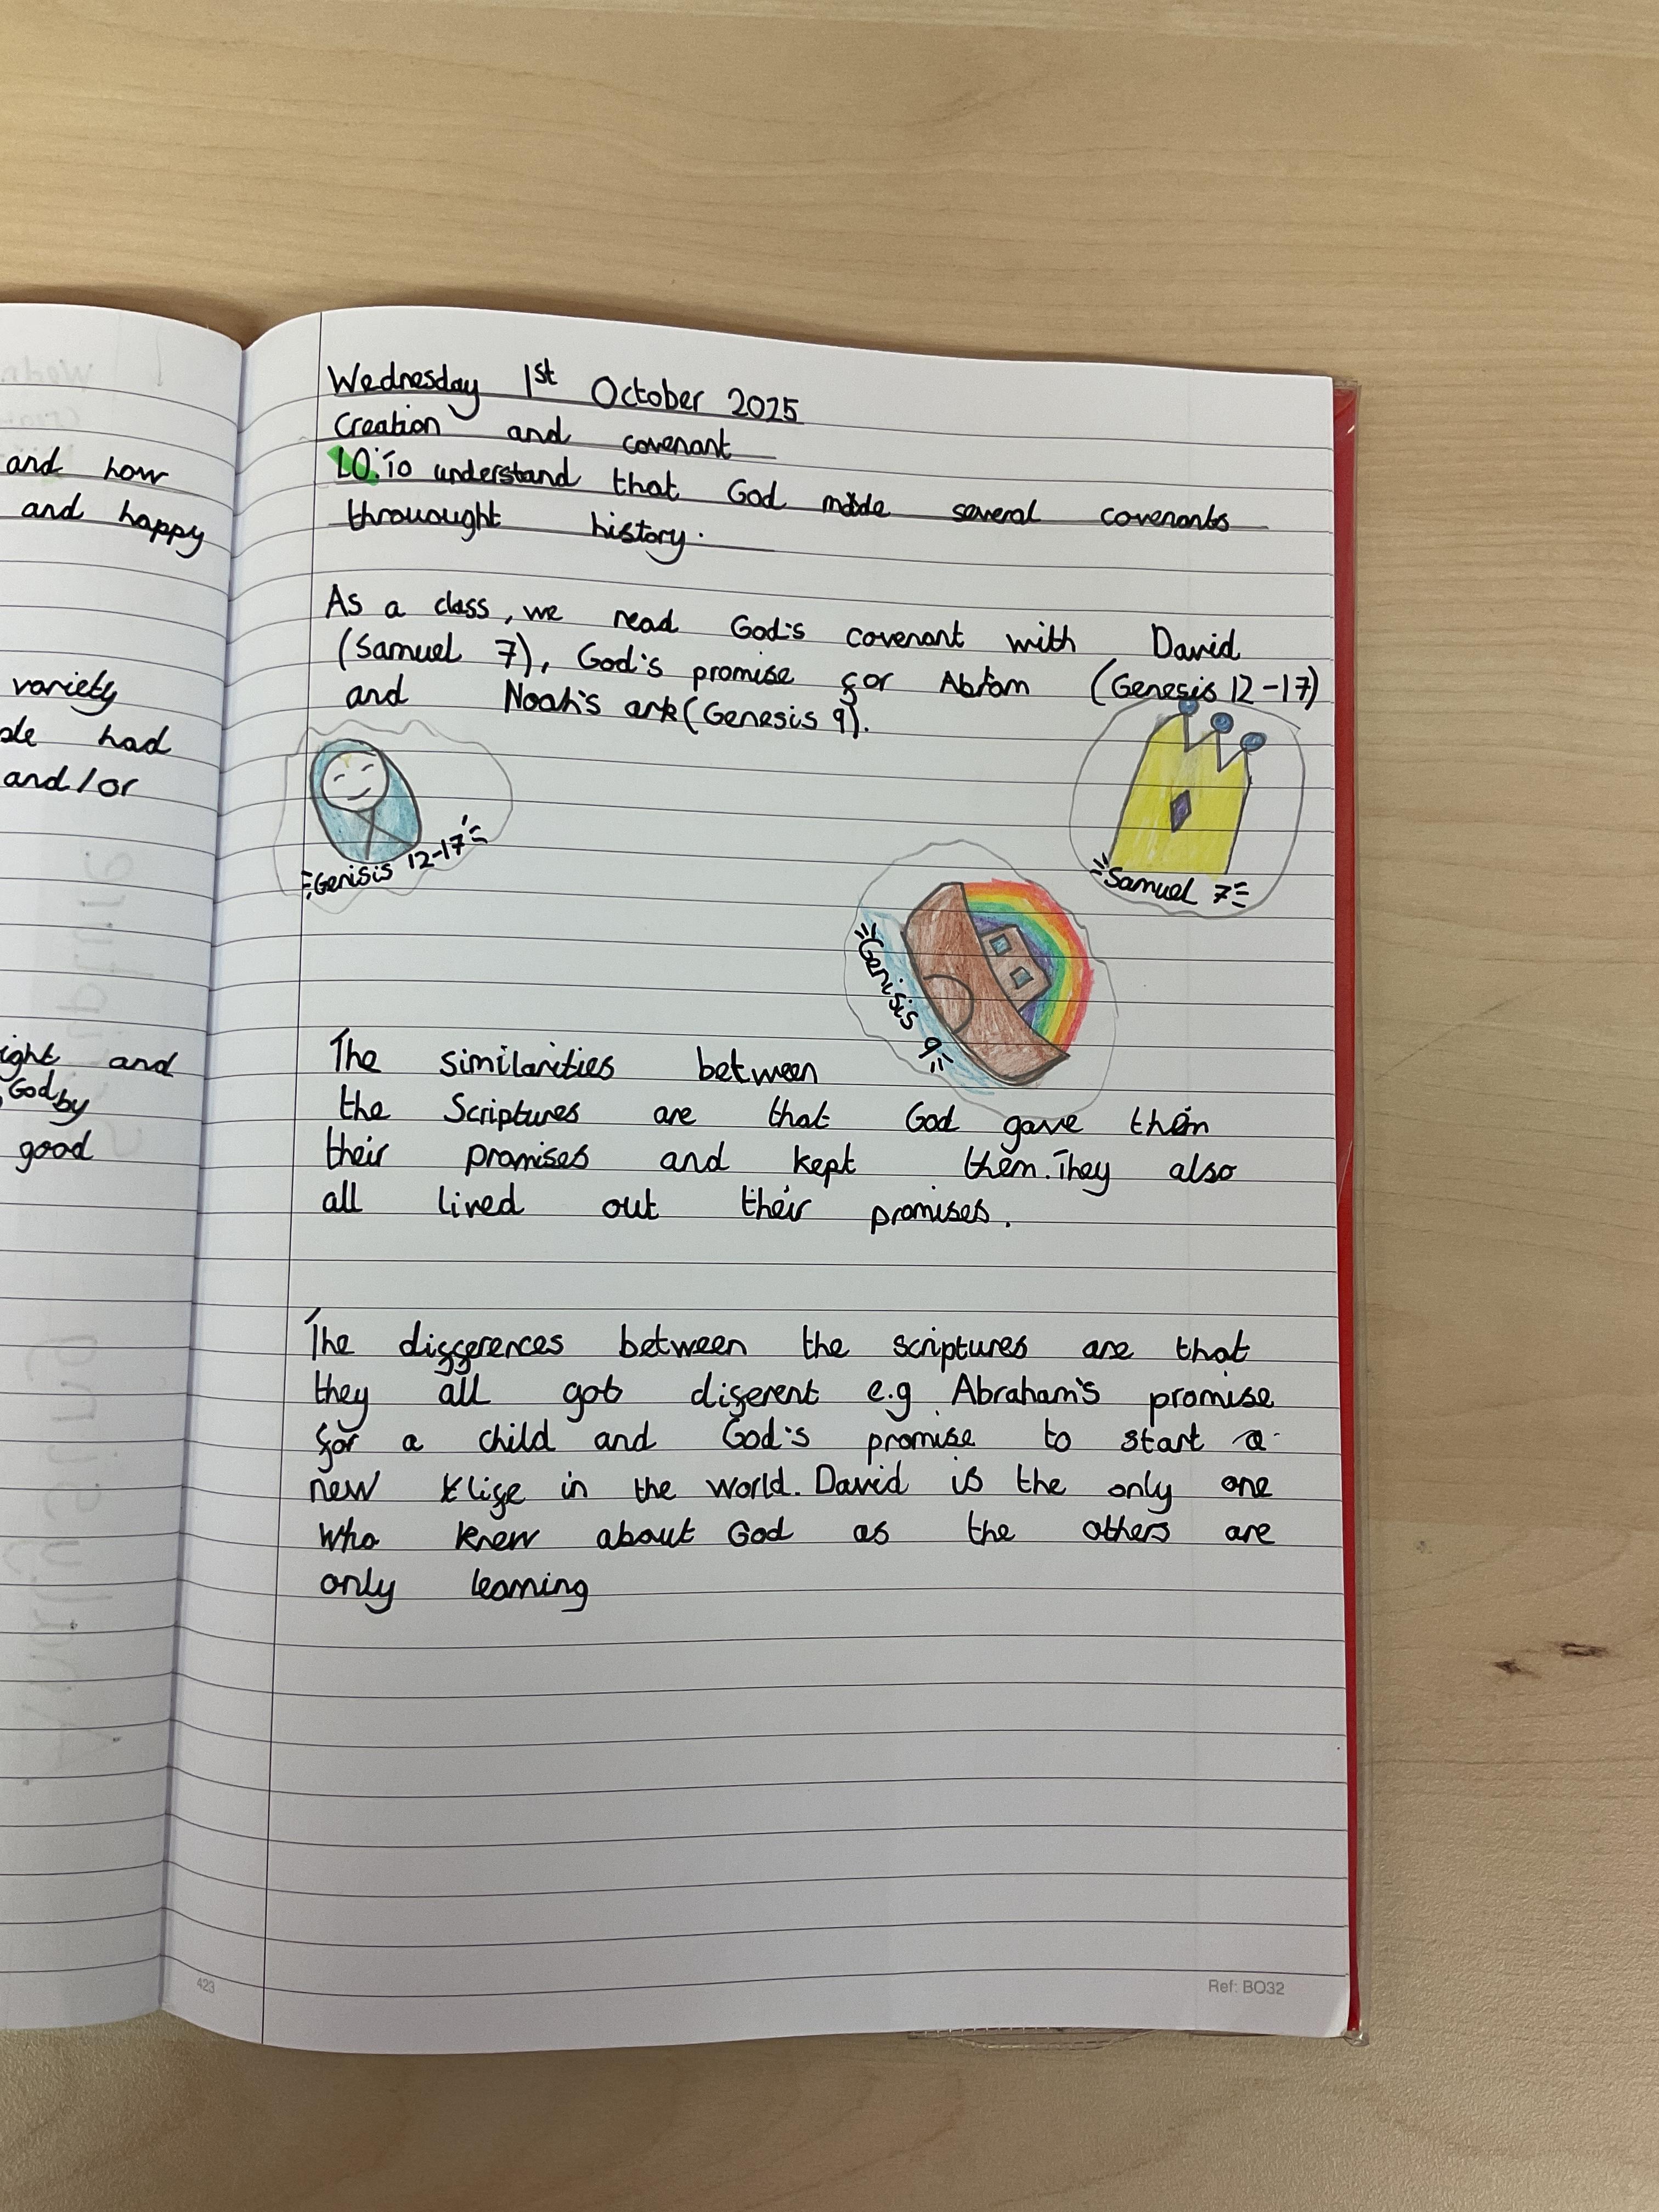 and how
and happy
variety
had
and/or
and
God by
good
Wednesday 1st October 2025
Creation and covenant
LO: To understand that God made several covenants
throuought history.
As a class, we read God's covenant with David
(Samuel 7), God's promise for Abram (Genesis 12-17)
and Noah's ark (Genesis 9).
Genisis 12-17
Samuel 7
Genisis 9
The similarities between
the Scriptures are that God gave them
their promises and kept them. They also
all lived out their promises.
The differences between the scriptures are that
they all got diferent e.g Abraham's promise
for a child and God's promise to start a
new life in the world. David is the only one
who knew about God as the others are
only learning
423
Ref: BO32